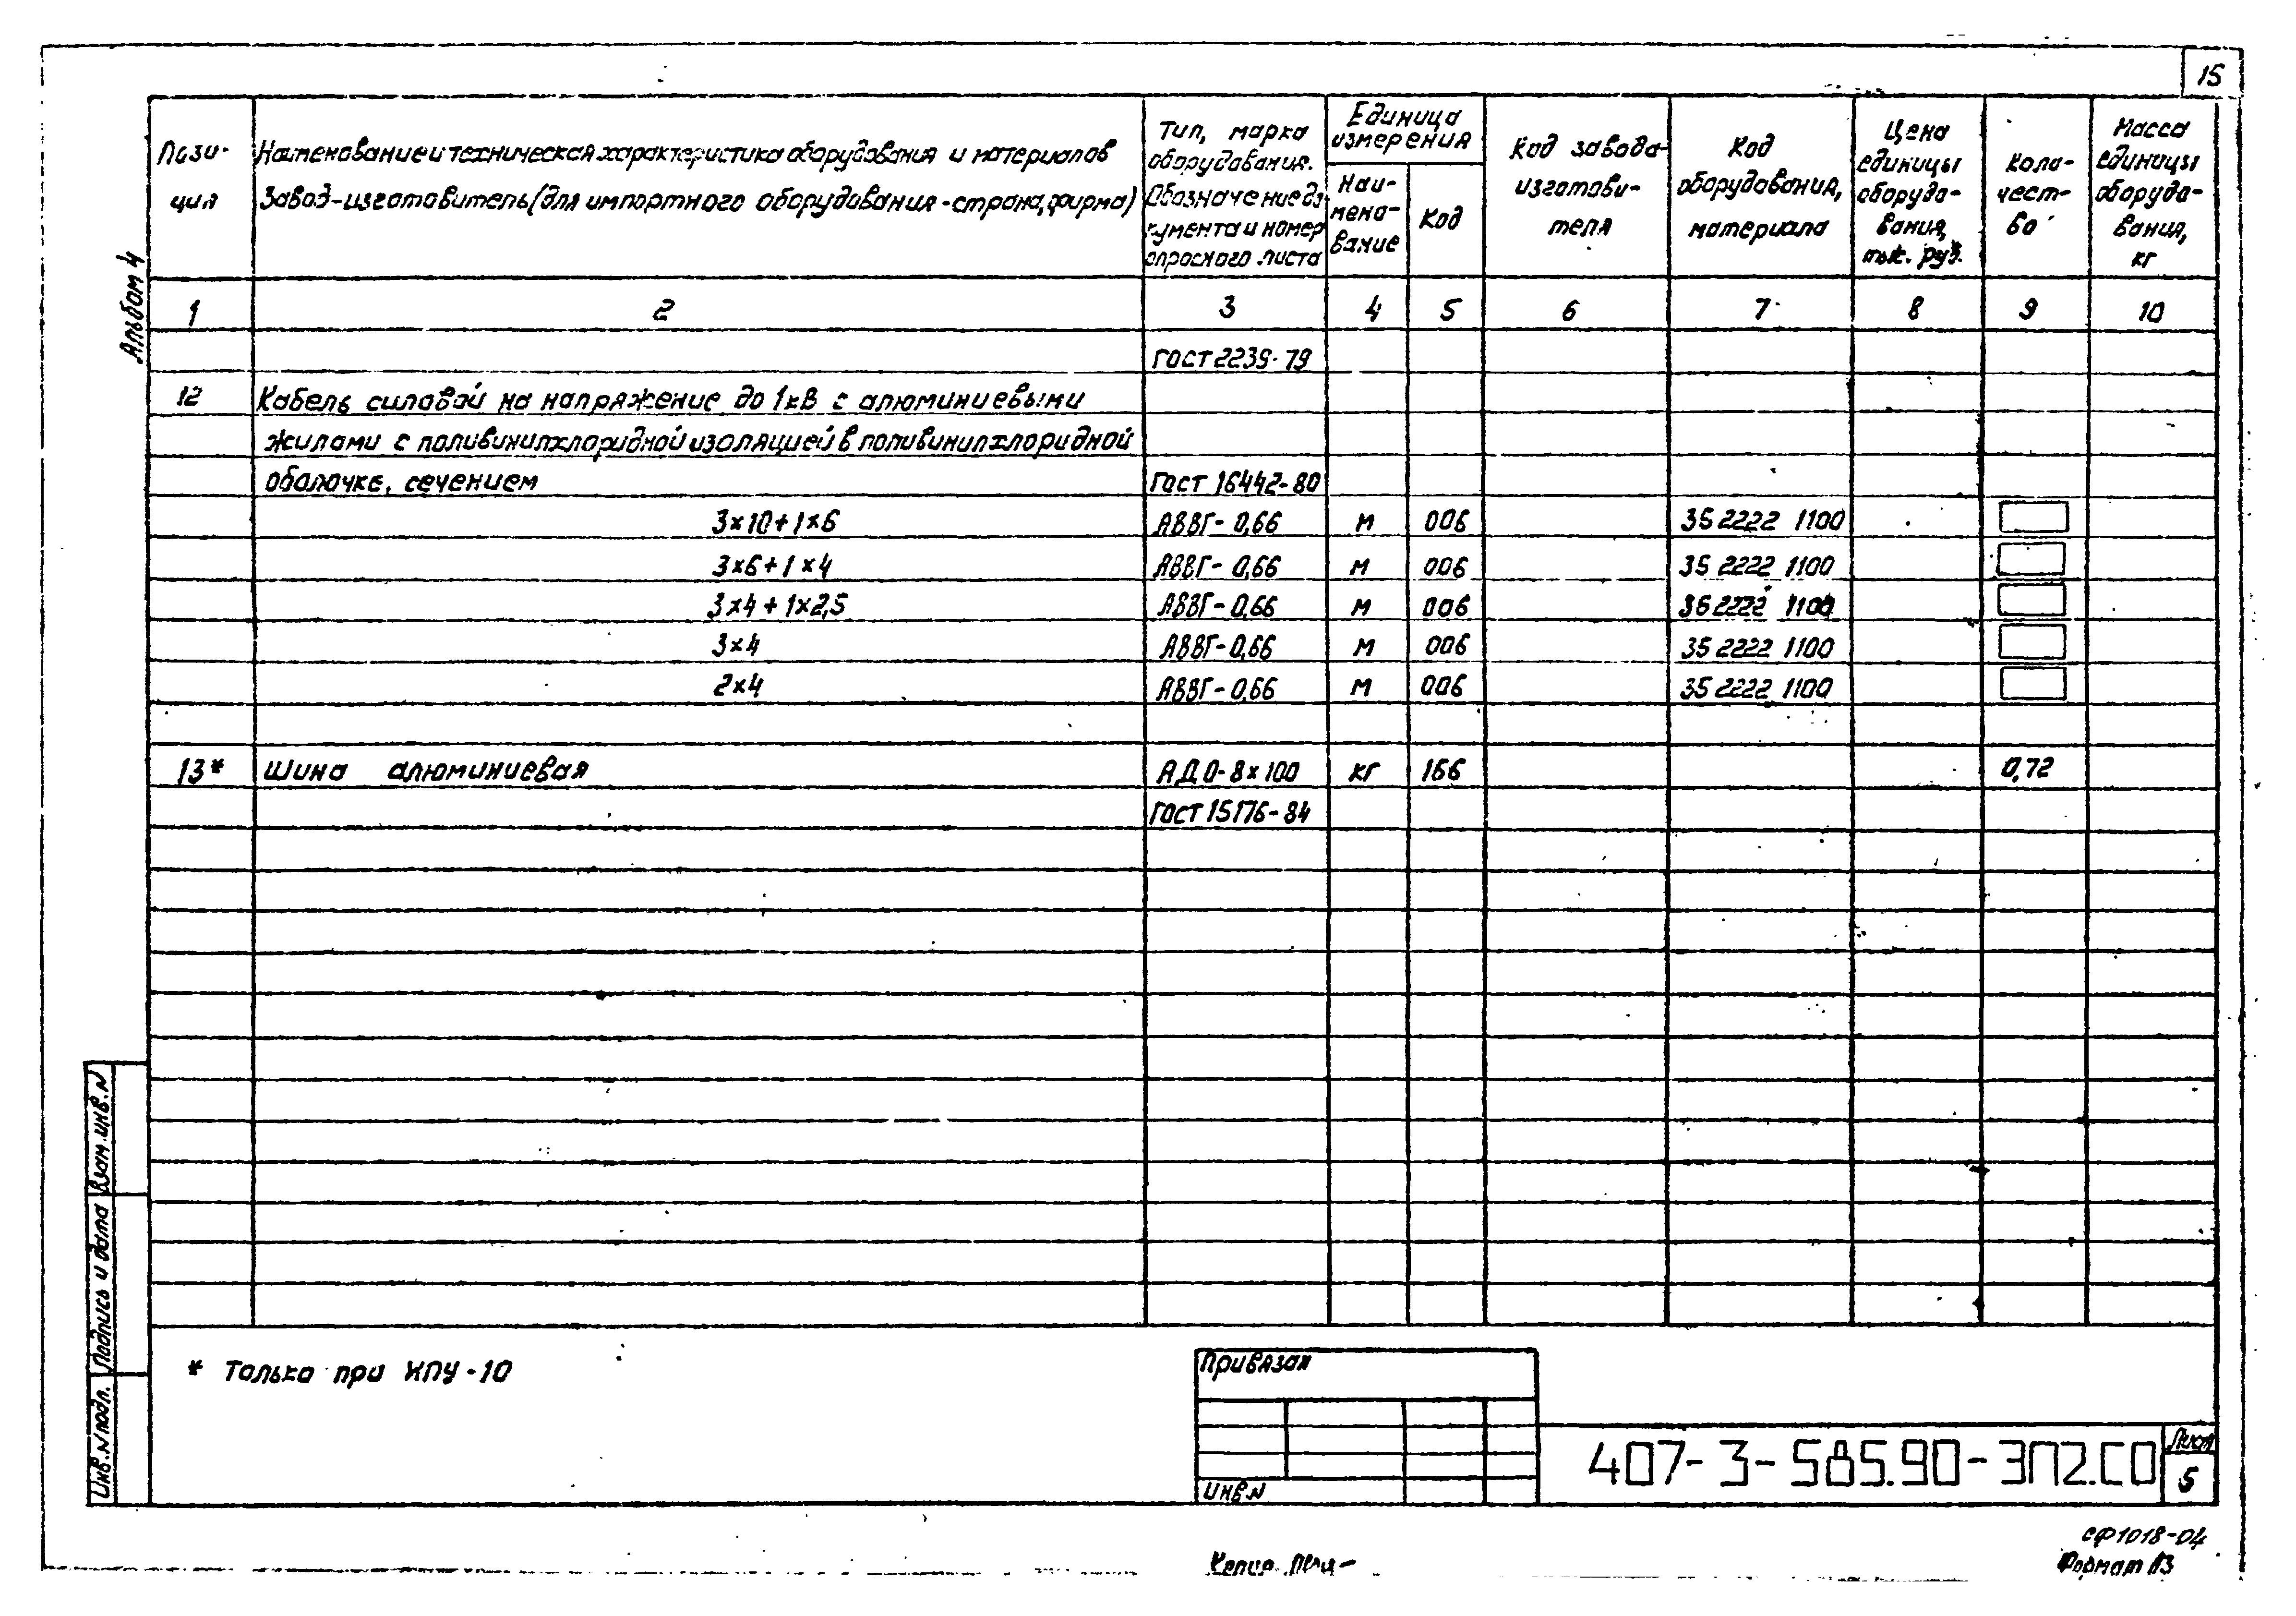 15
Альбом 4
Пози-
ция
Наименование и техническая характеристика оборудования и материалов
Завод-изготовитель (для импортного оборудования - страна, фирма)
Тип, марка
оборудования.
Обозначение до-
кумента и номер
опросного листа
Единица
измерения
Наи-
мено-
вание
Код
Код завода-
изготови-
теля
Код
оборудования,
материала
Цена
единицы
оборудо-
вания,
тыс. руб.
Коли-
чест-
во
Масса
единицы
оборудо-
вания,
кг
1 2 3 4 5 6 7 8 9 10
ГОСТ 2239-79
12 Кабель силовой на напряжение до 1кВ с алюминиевыми
жилами с поливинилхлоридной изоляцией в поливинилхлоридной
оболочке, сечением ГОСТ 16442-80
3×10+1×6 АВВГ-0,66 м 006 35 2222 1100
3×6+1×4 АВВГ-0,66 м 006 35 2222 1100
3×4+1×2,5 АВВГ-0,66 м 006 35 2222 1100
3×4 АВВГ-0,66 м 006 35 2222 1100
2×4 АВВГ-0,66 м 006 35 2222 1100
13* Шина алюминиевая АД0-8×100 кг 166 0,72
ГОСТ 15176-84
* Только при КПУ-10
Привязан
Инв.N
407-3-585.90-ЭП2.СО
Лист
5
Взам.инв.N
Подпись и дата
Инв.N подл.
СФ1018-04
Копир.
Формат А3